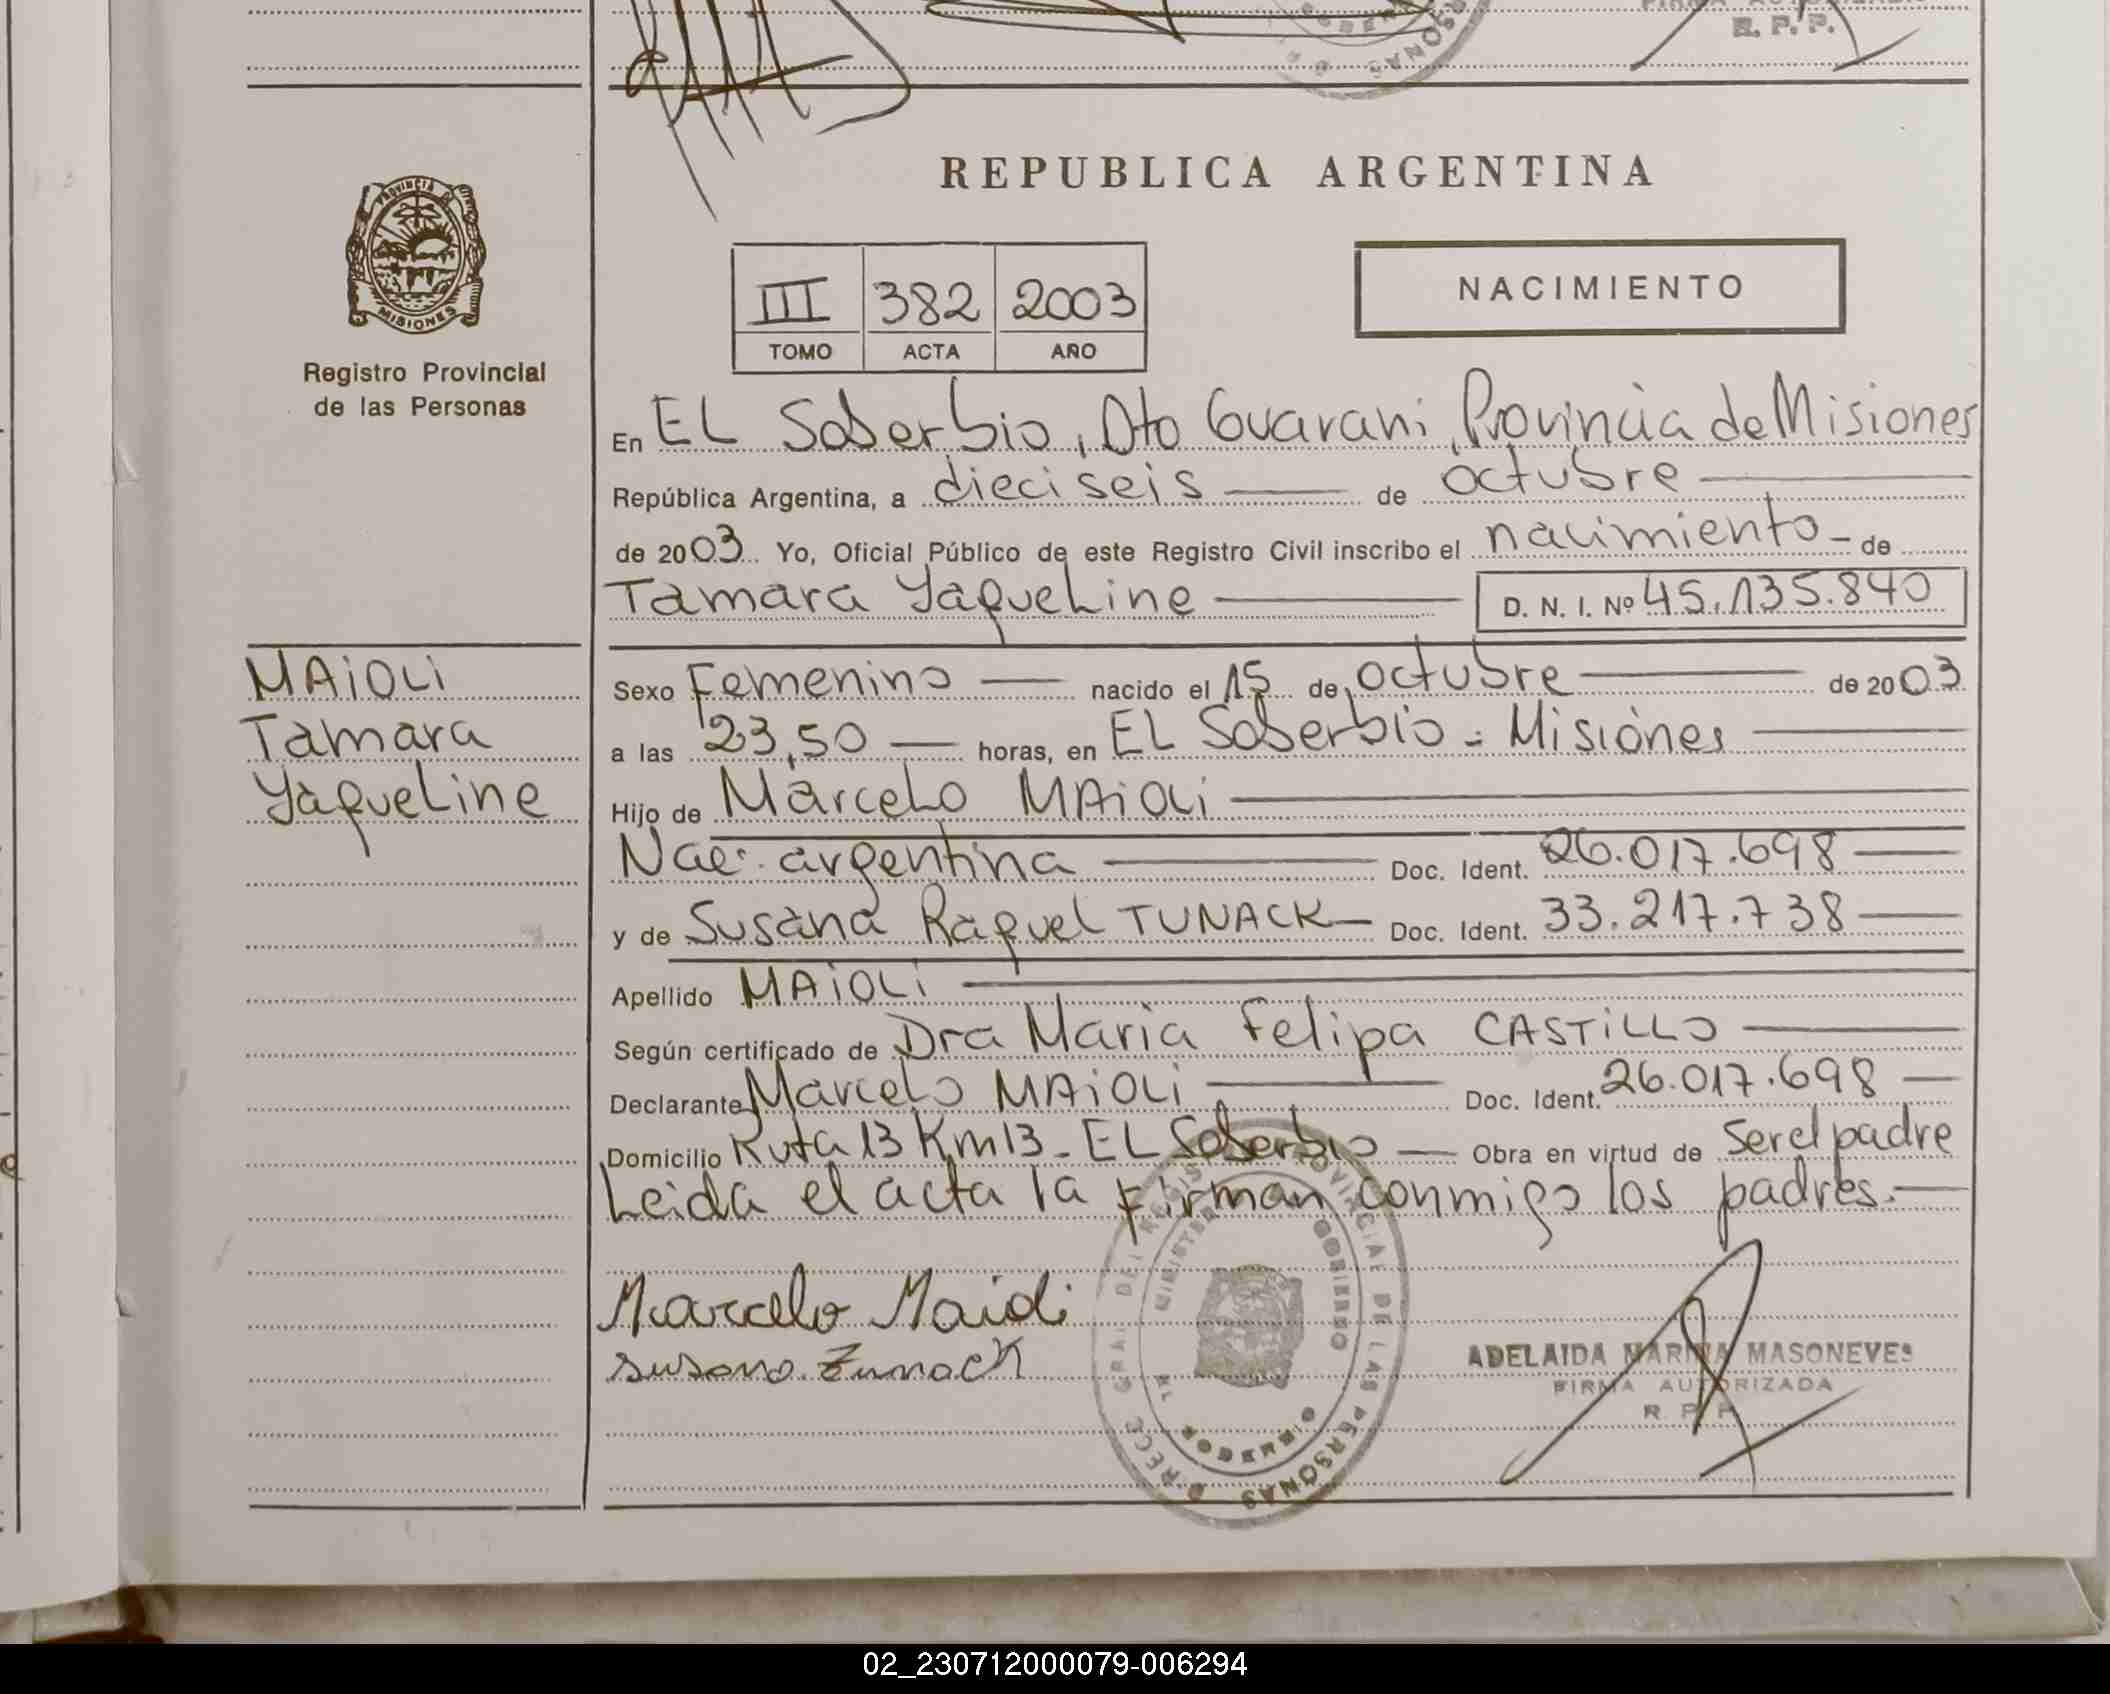 R. P. P.
REPUBLICA ARGENTINA
PROVINCIA DE
MISIONES
III 382 2003
TOMO ACTA AÑO
NACIMIENTO
Registro Provincial
de las Personas
En EL Soberbio, Dto Guarani, Provincia de Misiones
República Argentina, a dieciseis de octubre
de 2003 Yo, Oficial Público de este Registro Civil inscribo el nacimiento - de
Tamara Yaqueline D. N. I. Nº 45.135.840
MAiOLi
Tamara
Yaqueline
Sexo Femenino nacido el 15 de octubre de 2003
a las 23,50 horas, en EL Soberbio - Misiones
Hijo de Marcelo MAiOLi
Nac. argentina Doc. Ident. 26.017.698
y de Susana Raquel TUNACK Doc. Ident. 33.217.738
Apellido MAiOLi
Según certificado de Dra Maria Felipa CASTiLLO
Declarante Marcelo MAiOLi Doc. Ident. 26.017.698
Domicilio Ruta 13 Km 13 - EL Soberbio Obra en virtud de Ser el padre
Leida el acta la firman conmigo los padres.
Marcelo Maioli
susana Tunack
ADELAIDA MARINA MASONEVES
FIRMA AUTORIZADA
R. P. P.
02_230712000079-006294